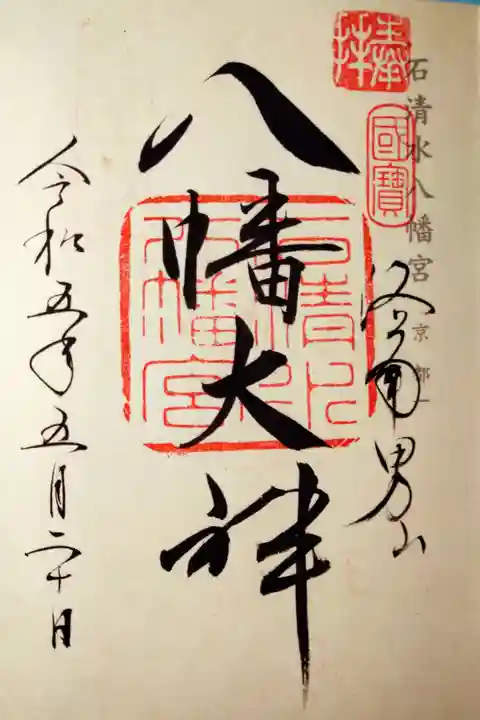 奉拝
國寶
石清水八幡宮
京都
男山
八幡大神
石清水
八幡宮
令和五年五月二十日